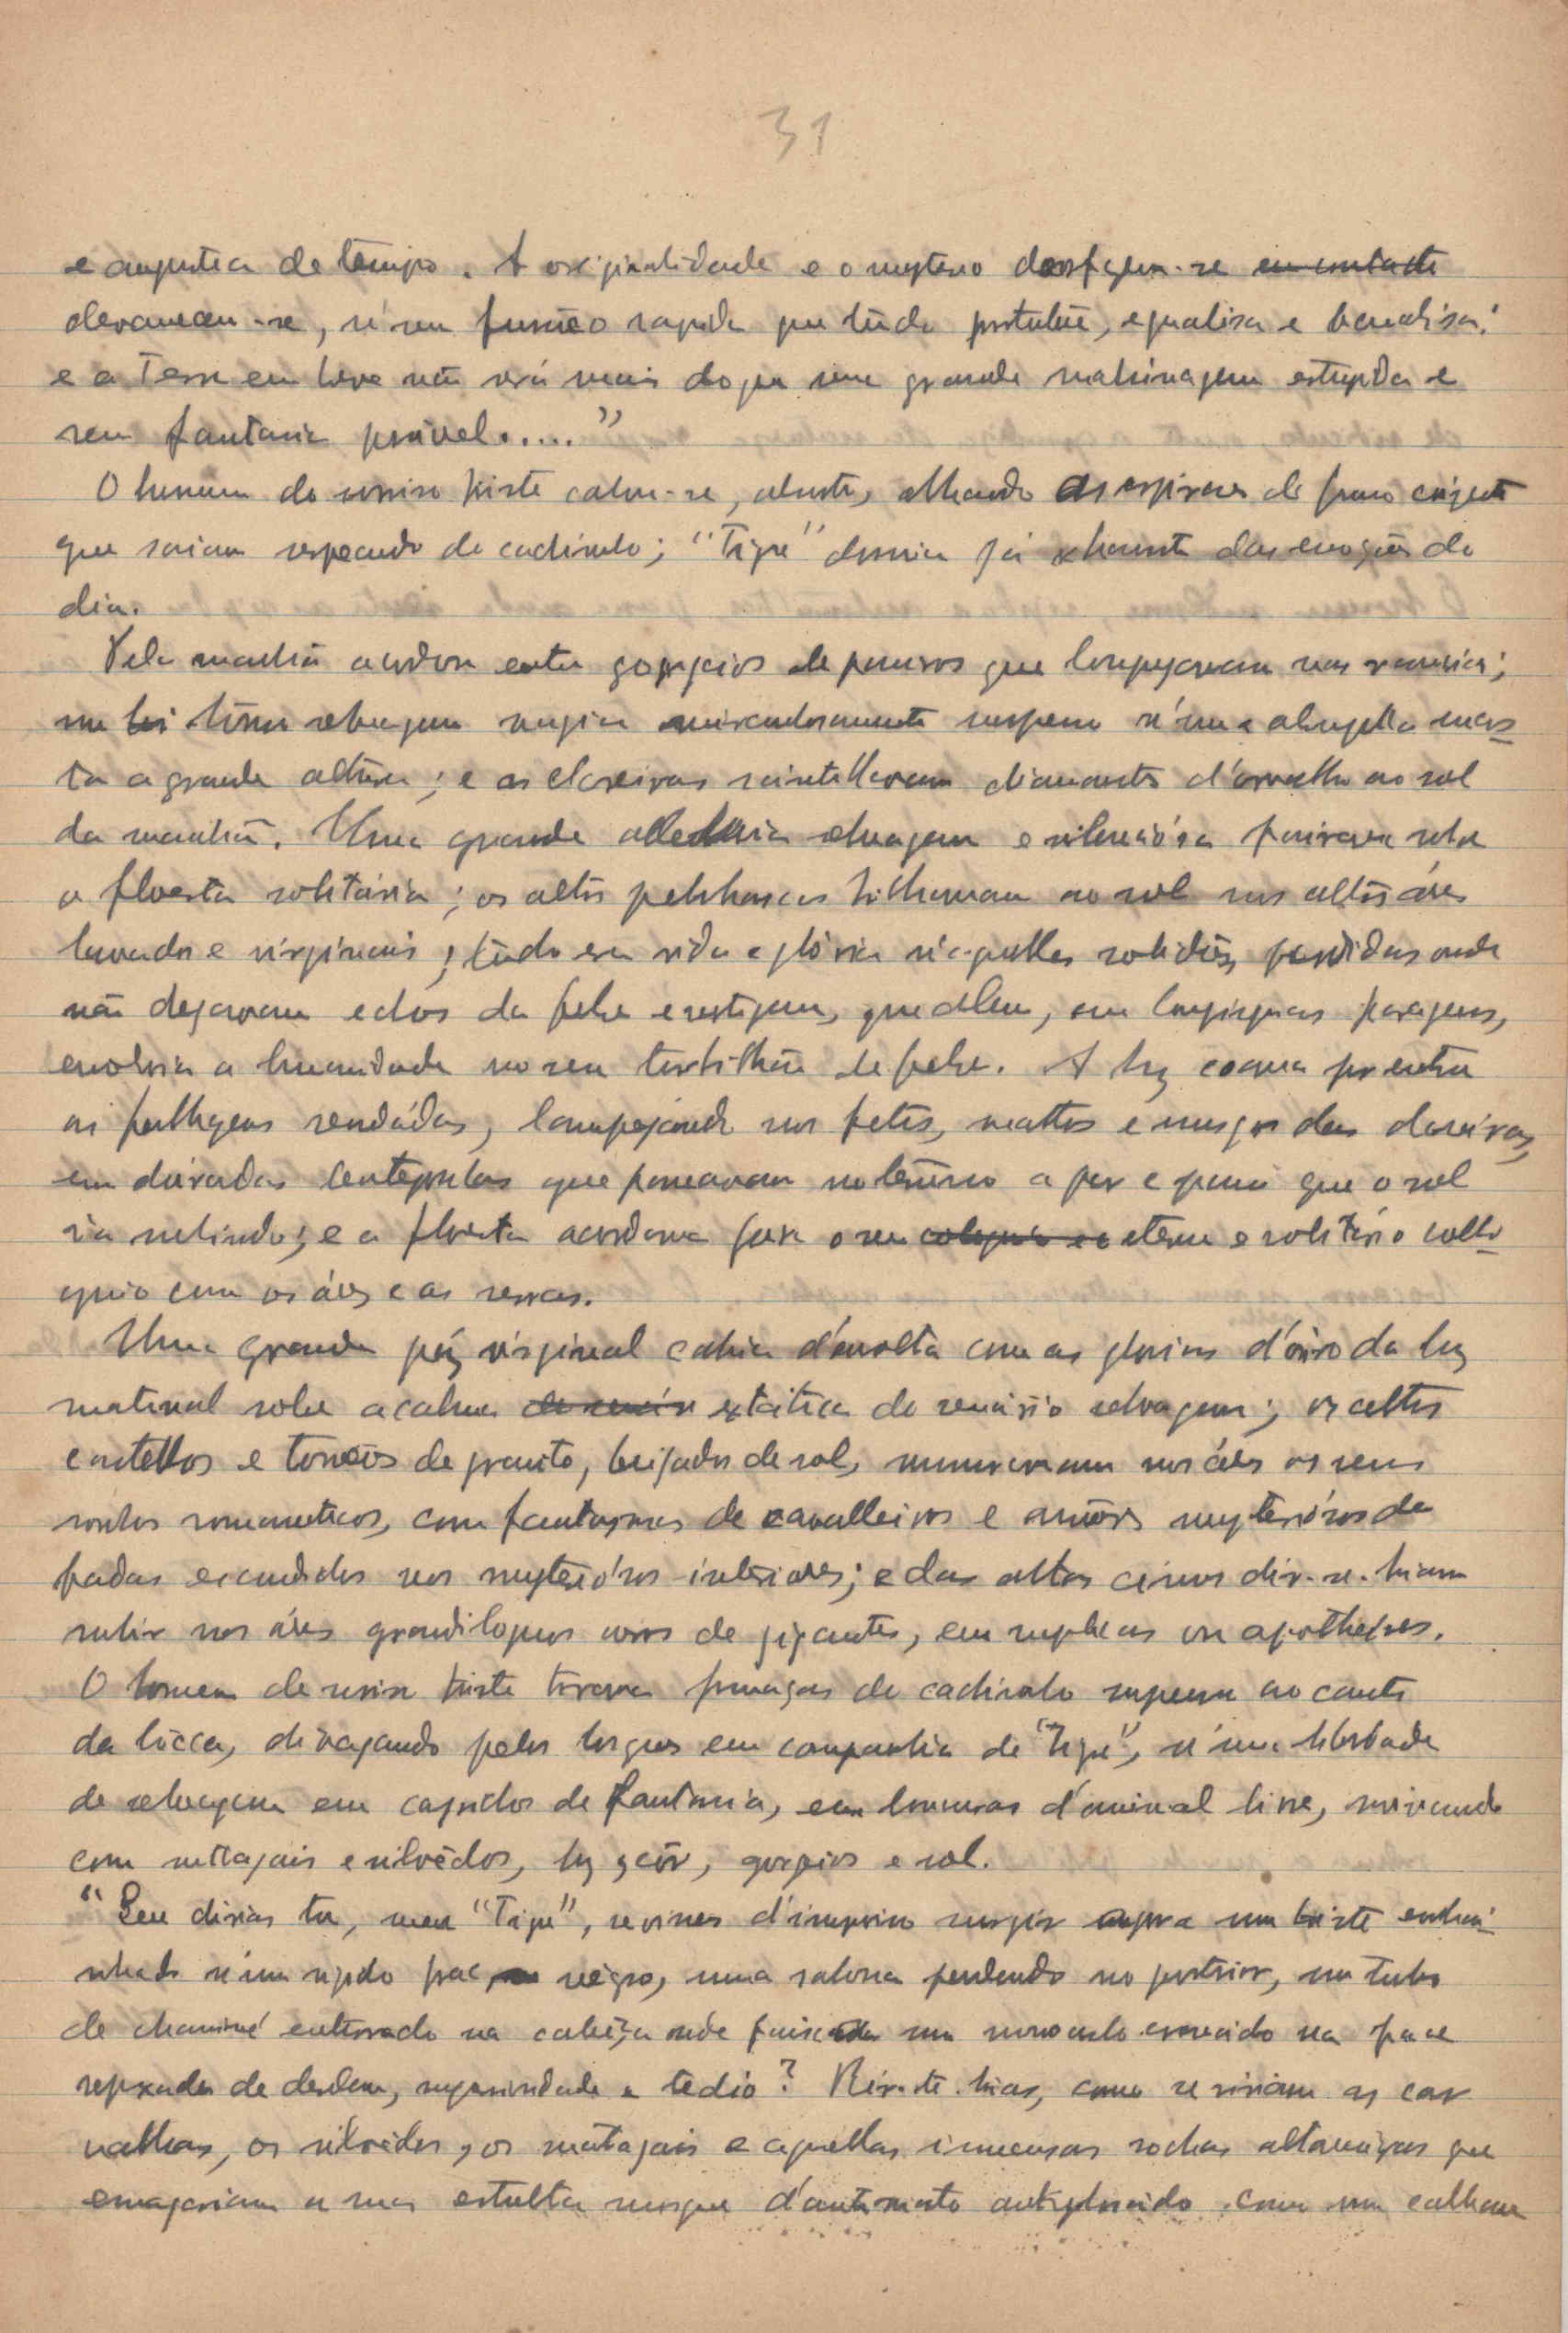 31
e angustia de tempo. A originalidade e o mysterio desfazem-se ~~em contacto~~
desvanecem-se, n'um fumêo rapido que tudo prostitúe, egualisa e banalisa:
e a Terra em breve não será mais do que uma grande machinagem estupida e
sem fantasia possivel....."
O homem do sorriso triste calou-se, absorto, olhando as espiraes de fumo cinzento
que saiam serpeando do cachimbo; "Tigre" dormia já exhausto das emoções do
dia.
Pela manhã acordou entre gorgeios de passaros que lampejavam nas ramarias;
um tôrvo selvagem rugia suspenso n'uma abrupta encos-
ta a grande altura; e as clareiras scintillavam diamantes d'orvalho ao sol
da manhã. Uma grande alleluia selvagem e silenciósa pairava sobre
a floresta solitária; os altos penhascos brilhavam ao sol nos altos áres
lavados e virginaes; tudo era vida e glória n'aquellas solidões perdidas onde
não chegavam echos da febre e vertigem, que além, em longinquas paragens,
envolvia a humanidade no seu turbilhão de febre. A luz coava por entre
as folhagens rendádas, lampejando nos fetos, mattos e musgos das clareiras,
em doiradas centepeias que passeavam no terreno a par e passo que o sol
ia subindo; e a floresta acordava para o seu ~~coloquio e o~~ eterno e solitário collo-
quio com os áres e as serras.
Uma grande páz virginal cahia d'envolta com as glorias d'ôiro da luz
matinal sobre a calma ~~do cenário~~ extática do cenário selvagem; os altos
castellos e torreões de granito, beijados de sol, murmuravam nos áres os seus
sonhos romanticos, com fantasmas de cavalleiros e amôres mysteriósos de
fadas escondidas nos mysteriósos interiores; e das altas cimas dir-se-hiam
subir nos áres grandiloquos coros de gigantes, em suplicas ou apotheóses.
O homem do sorriso triste tirava fumaças do cachimbo suspenso ao canto
da bôcca, divagando pelos bosques em companhia de "Tigre", n'uma liberdade
de selvagem em caprichos de fantasia, em loucuras d'animal livre, convivendo
com mattagais e silvêdos, luz, côr, gorgeios e sol.
"Que dirias tu, meu "Tigre", se visses d'improviso surgir agora um triste enchu-
mhado n'um rigido frac negro, uma sabona pendendo no posterior, um tubo
de chaminé enterrado na cabêça onde faiscasse um monoculo esquecido na face
repuxada de desdem, superioridade e tedio? Rir-te-hias, como se ririam os car-
valhos, os silvêdos, os matagais e aquellas immensas rochas altaneiras que
esmagariam a sua estulta d'automato como um calhau